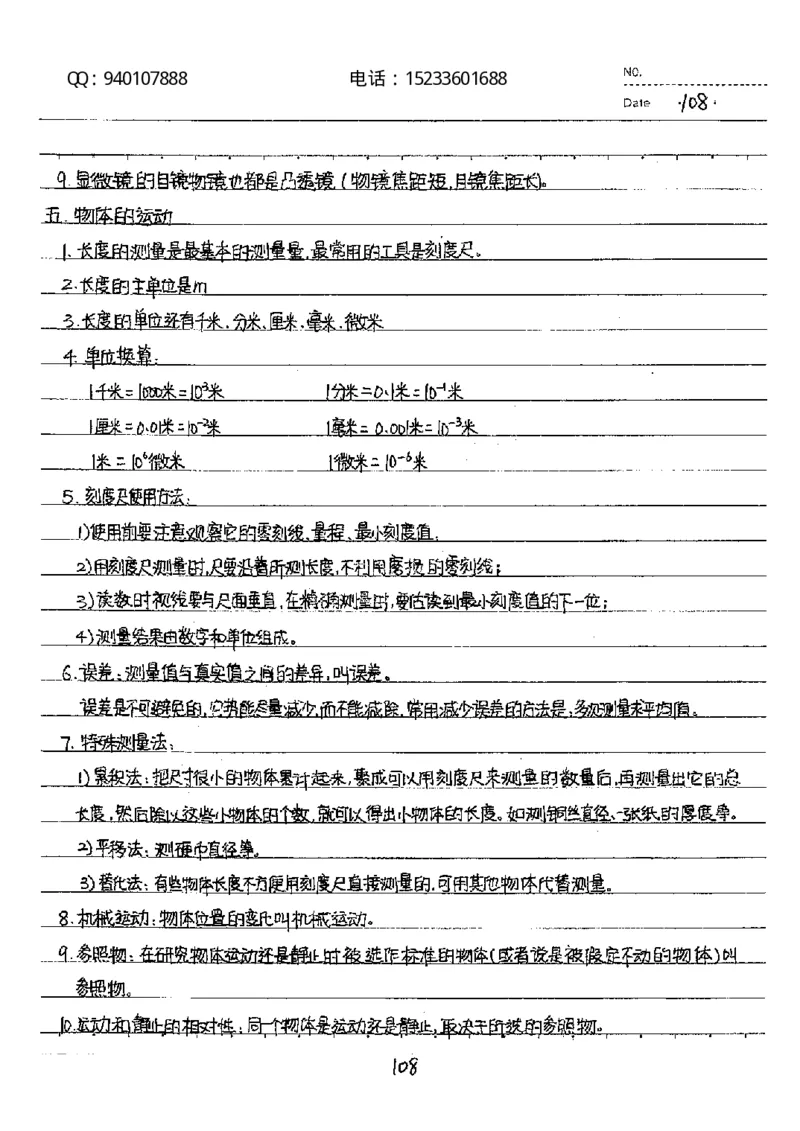 QQ：940107888 电话：15233601688 NO.
Date ·108·
9.显微镜的目镜物镜也都是凸透镜(物镜焦距短,目镜焦距长)。
五.物体的运动
1.长度的测量是最基本的测量量,最常用的工具是刻度尺。
2.长度的主单位是m
3.长度的单位还有千米.分米.厘米.毫米.微米
4.单位换算：
1千米=1000米=10³米 1分米=0.1米=10⁻¹米
1厘米=0.01米=10⁻²米 1毫米=0.001米=10⁻³米
1米=10⁶微米 1微米=10⁻⁶米
5.刻度尺使用方法：
1)使用前要注意观察它的零刻线、量程、最小刻度值;
2)用刻度尺测量时,尺要沿着所测长度,不利用磨损的零刻线;
3)读数时视线要与尺面垂直,在精确测量时,要估读到最小刻度值的下一位;
4)测量结果由数字和单位组成。
6.误差：测量值与真实值之间的差异,叫误差。
误差是不可避免的,它只能尽量减少,而不能消除,常用减少误差的方法是:多次测量求平均值。
7.特殊测量法：
1)累积法：把尺寸很小的物体累计起来,聚成可以用刻度尺来测量的数量后,再测量出它的总
长度,然后除以这些小物体的个数,就可以得出小物体的长度。如测铜丝直径、一张纸的厚度等。
2)平移法：测硬币直径等。
3)替代法：有些物体长度不方便用刻度尺直接测量的,可用其他物体代替测量。
8.机械运动：物体位置的变化叫机械运动。
9.参照物：在研究物体运动还是静止时被选作标准的物体(或者说是被假定不动的物体)叫
参照物。
10.运动和静止的相对性：同一个物体是运动还是静止,取决于所选的参照物。
108